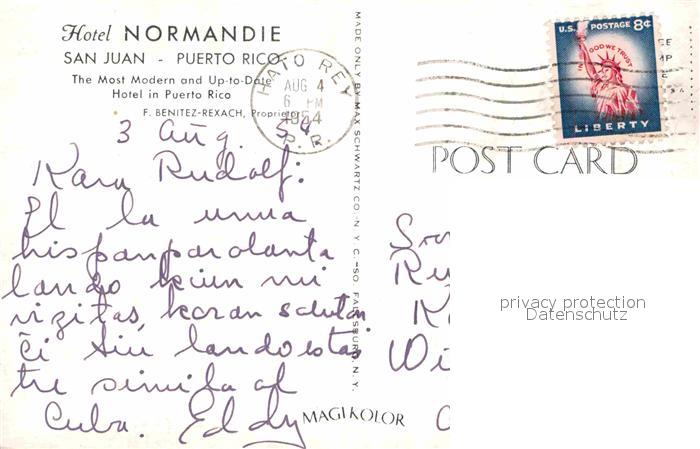 Hotel NORMANDIE
SAN JUAN - PUERTO RICO
The Most Modern and Up-to-Date
Hotel in Puerto Rico
F. BENITEZ-REXACH, Proprietor
HATO REY
AUG 4
6 PM
1954
P. R.
U.S. POSTAGE 8¢
IN GOD WE TRUST
LIBERTY
POST CARD
3 Aug. 54
Kara Rudolf:
El la unua
hispanparolanta
lando kiun mi
vizitas, koran saluton
Ĉi tiu lando estas
tre simila al
Cuba. Eddy
MADE ONLY BY MAX SCHWARTZ CO. N. Y. C. -SO. FALLSBURG, N. Y.
MAGIKOLOR
Wi
privacy protection
Datenschutz